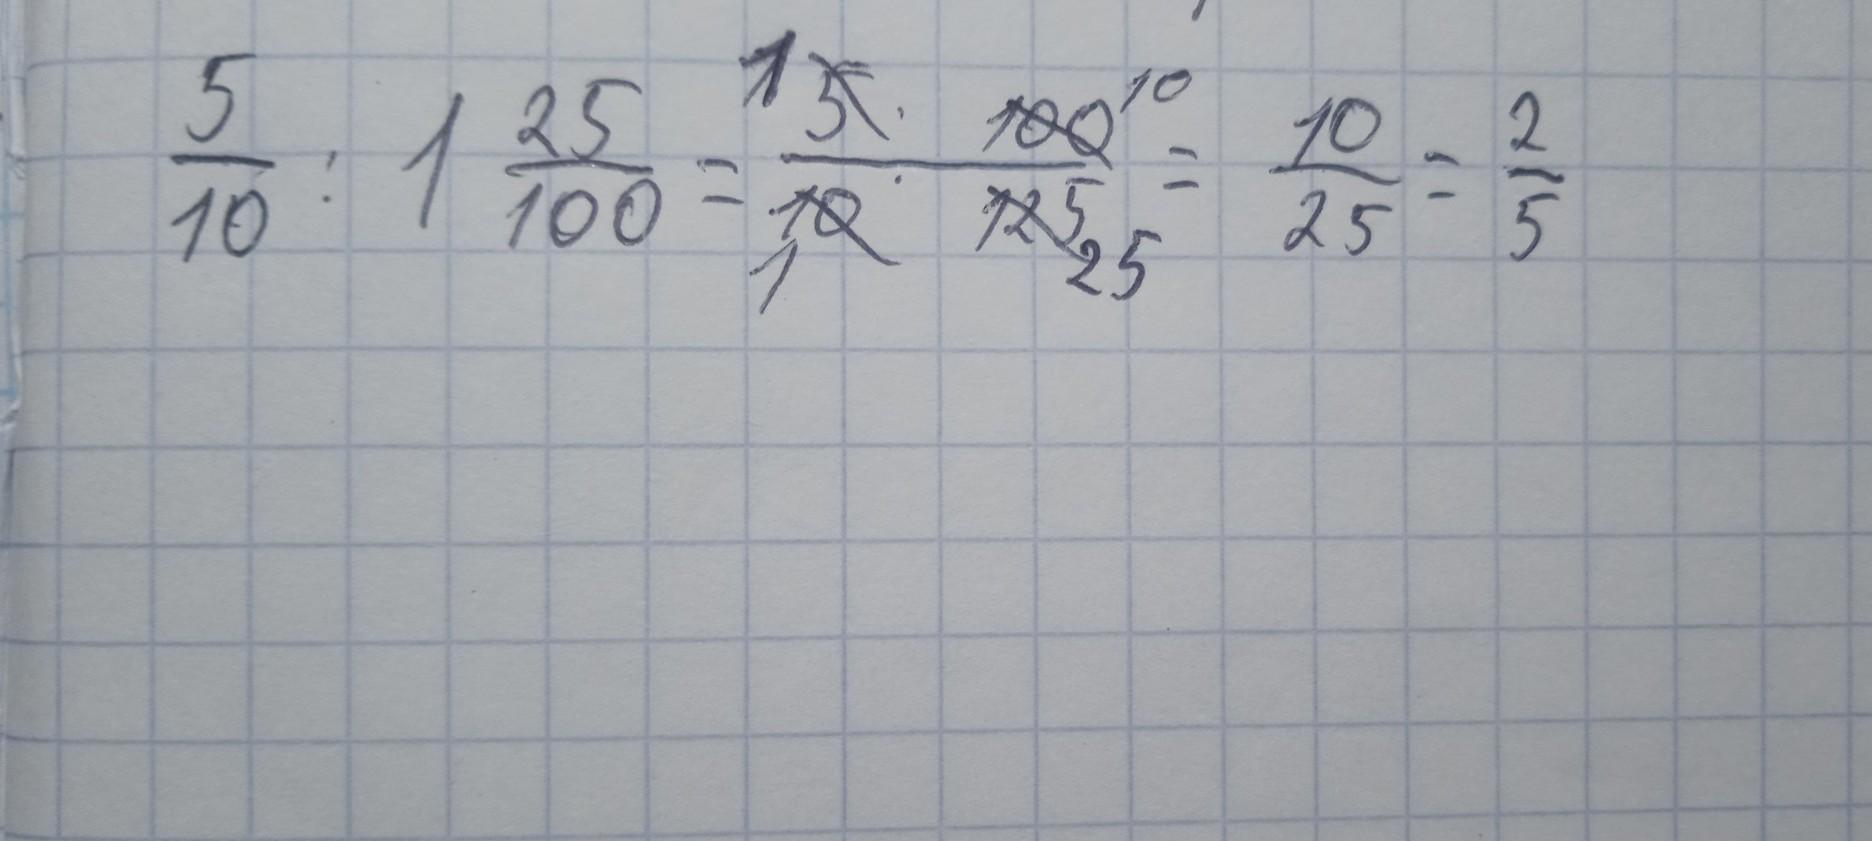 5/10 : 1 25/100 = 1 5 · 100 10 / 10 · 125 1 25 = 10/25 = 2/5